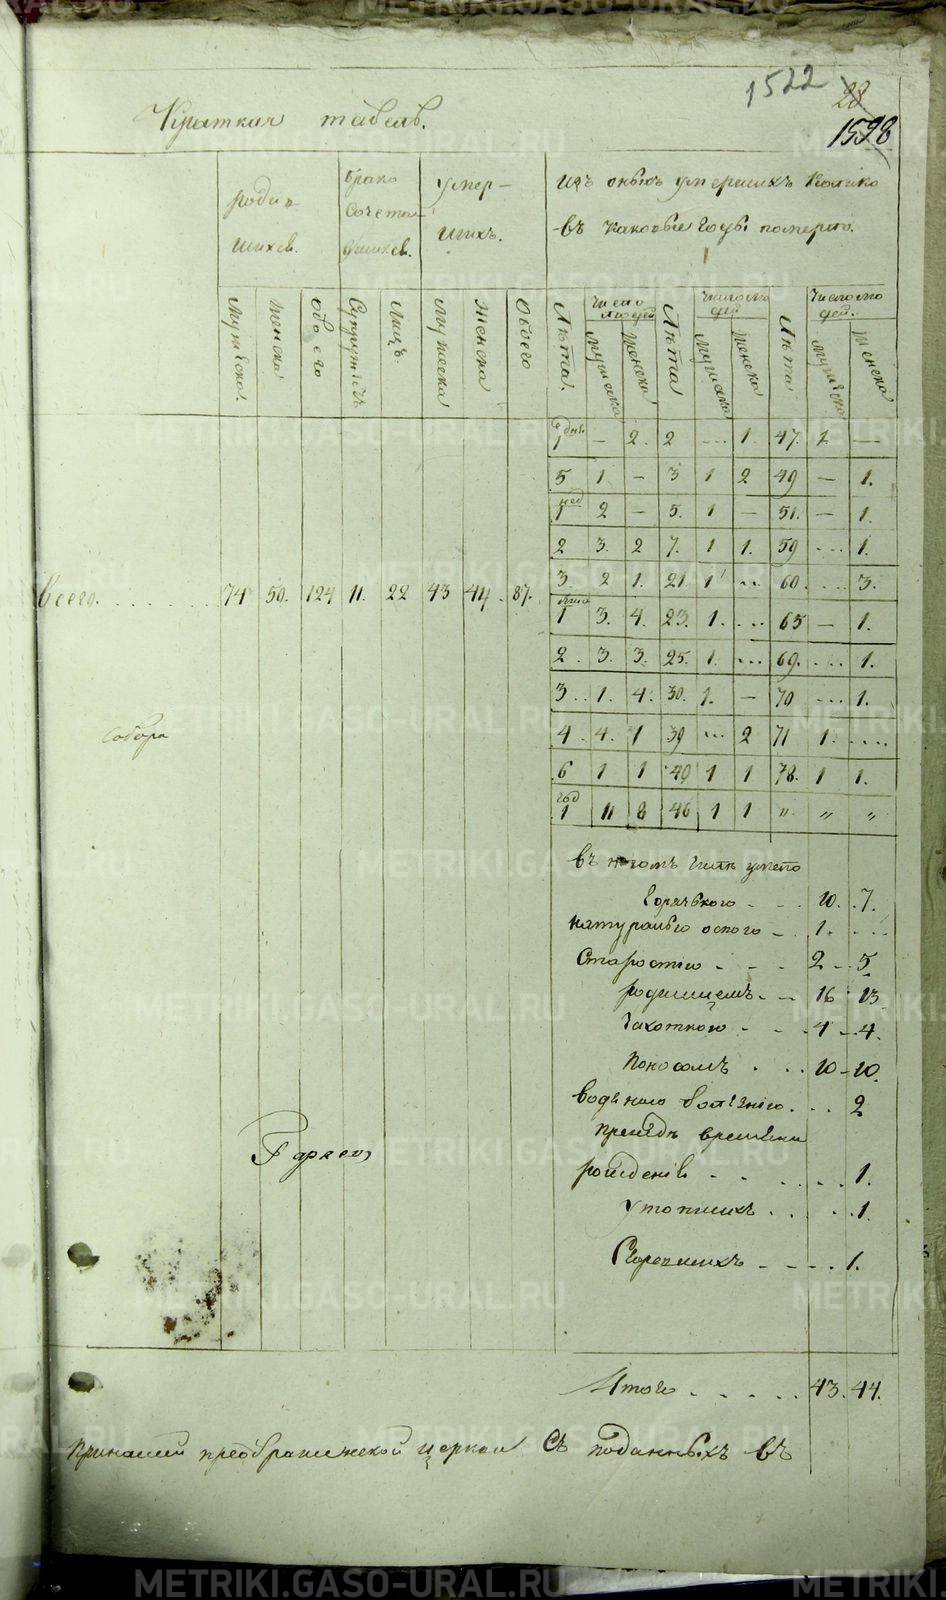 1522
28
1598
Краткая табель.
роди-
шихся.
брако
сочета-
вшихся.
умер-
шихъ.
изъ оныхъ умершихъ Колико
въ каковые годы померло.
Мужеска. Женска Обоего Супружествъ Лицъ. Мужеска Женска Обоего
Лѣта. Число людей Мужеска Женска Лѣта Число людей Мужеска Женска Лѣта Число людей. Мужеска Женска
дней 1 — 2. 2 ... 1. 47. 1 —
5 1 — 3 1 2 49 — 1.
нед 1 2 — 5. 1 — 51. — 1.
2 3. 2 7. 1 1. 59 ... 1.
3 2 1. 21. 1 .. 60. ... 3.
1 3. 4. 23. 1. ... 65 — 1.
Всего. 74 50. 124 11. 22 43 44. 87.
2. 3. 3. 25. 1. ... 69. ... 1.
3.. 1. 4. 30. 1. — 70 ... 1.
4. 4. 1 39 ... 2 71 1. ....
6 1 1 40 1 1 78. 1 1.
год 1 11 8 46 1 1 " " "
въ томъ числѣ умерло
Горячкою - - - 10. .7.
натуральною оспою - . 1. ...
Старостію - - - 2 - 5
родимцемъ. - - 16 13.
Чахоткою - - - 4 - 4.
Поносомъ . . . 10 - 10.
водяною болѣзнію. . . . 2
прежде времени
рожденія - - . . . . . 1.
утопшихъ . . . . . 1.
Сгорѣвшихъ - - - - . 1.
Итого . . . . . . 43. 44.
преображенской церкви Съ поданныхъ въ